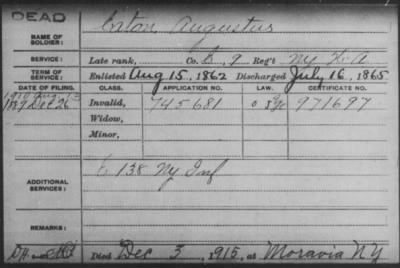 DEAD
NAME OF SOLDIER: Eaton Augustus
SERVICE: Late rank, Co. E, 9 Reg't NY H.A
TERM OF SERVICE: Enlisted Aug 15, 1862 Discharged July 16, 1865
DATE OF FILING. CLASS. APPLICATION NO. LAW. CERTIFICATE NO.
1889 Dec 26 Invalid, 745681 971697
Widow,
Minor,
ADDITIONAL SERVICES: E 138 NY Inf
REMARKS:
Died Dec 3, 1915, at Moravia NY